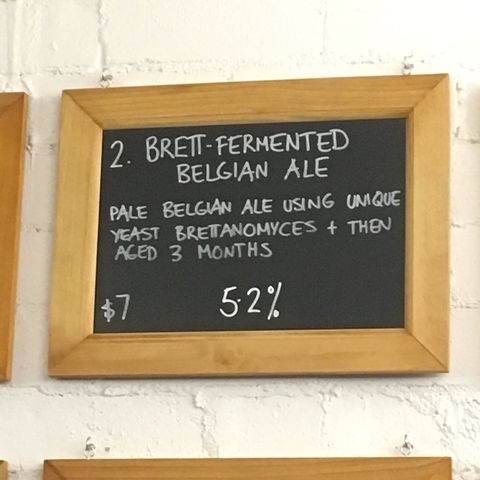 2. BRETT-FERMENTED
BELGIAN ALE
PALE BELGIAN ALE USING UNIQUE
YEAST BRETTANOMYCES + THEN
AGED 3 MONTHS
$7 5.2%